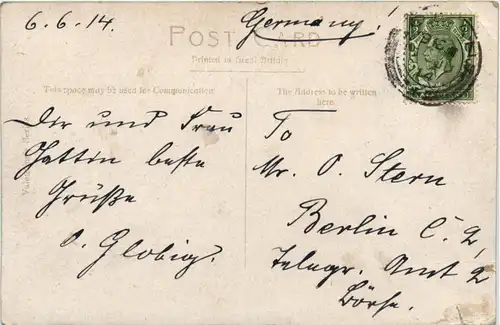 6.6.14.
Germany!
POST CARD
Printed in Great Britain
This space may be used for Communication
The Address to be written
here
Dir und Frau
Gattin beste
Grüße
O. Globig.
To
Mr. O. Stern
Berlin C. 2,
Telegr. Amt 2
Börse.